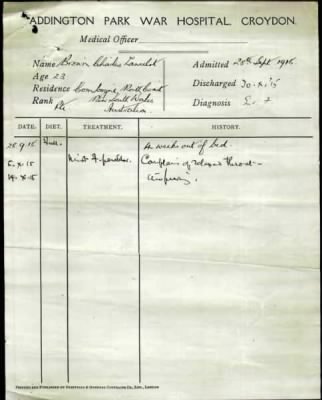 ADDINGTON PARK WAR HOSPITAL, CROYDON.
Medical Officer
Name Brown Charles Admitted 20th Sept 1915
Age 23
Discharged 30.X.15
Residence North Coast
Rank Pte New South Wales Diagnosis E. F
Australia
DATE. DIET. TREATMENT. HISTORY.
25.9.15 Full. 4 weeks out of bed.
5.X.15 Complains of throat
14.X.15 Improving.
PRINTED AND PUBLISHED BY HOSPITALS & GENERAL CONTRACTS CO., LTD., LONDON